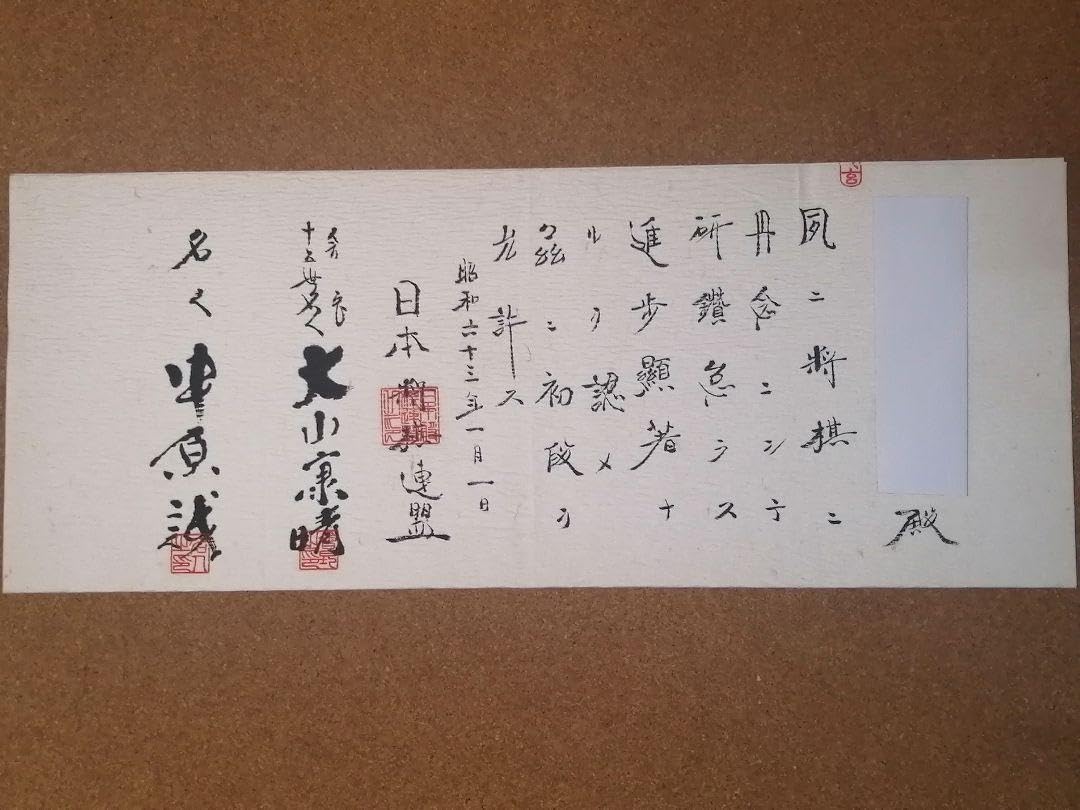 殿
夙ニ将棋ニ
丹念ニシテ
研鑽怠ラス
進歩顯著ナ
ルヲ認メ
茲ニ初段ヲ
允許ス
昭和六十三年一月一日
日本将棋連盟
会長
十五世名人
大山康晴
名人
中原誠